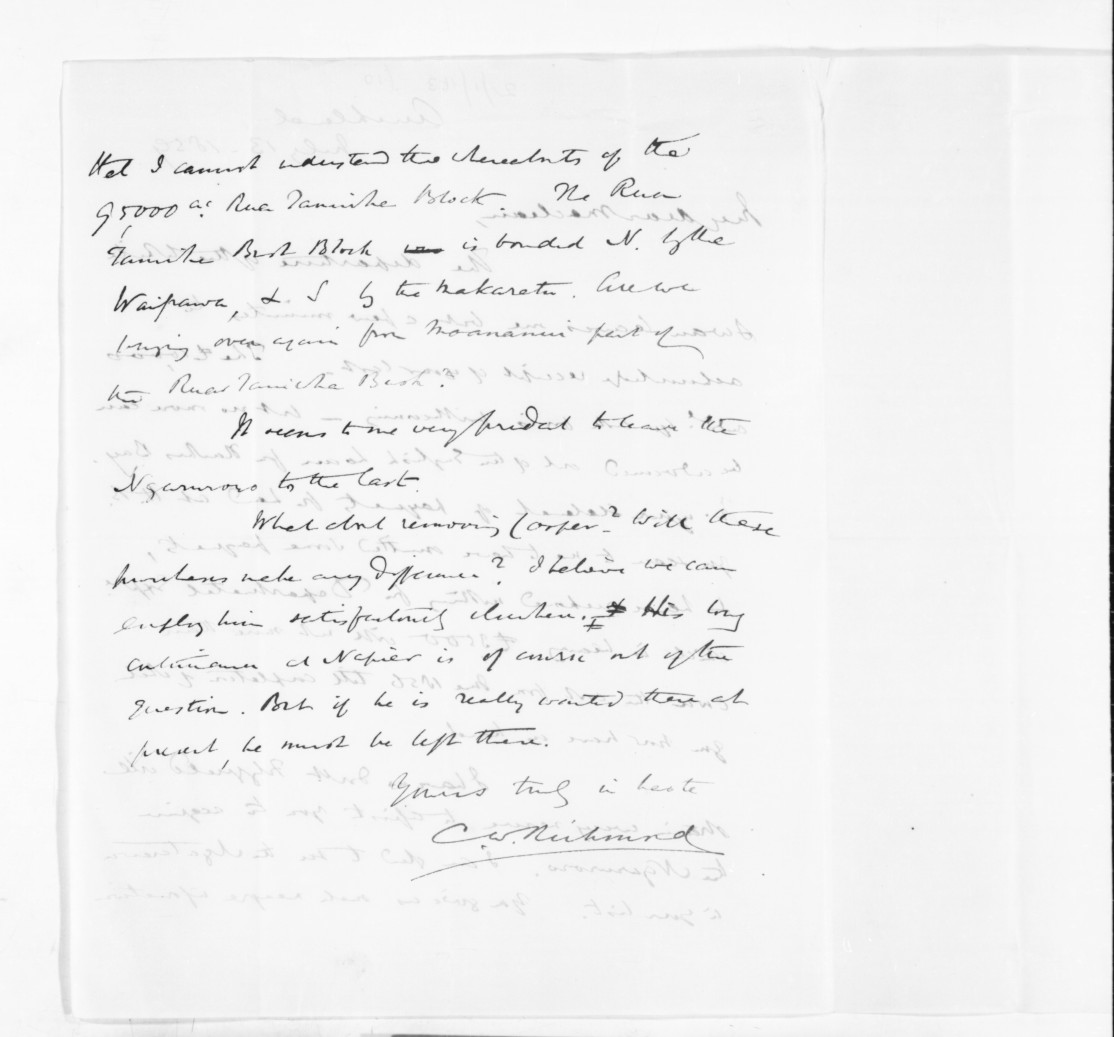 that I cannot understand the whereabouts of the
95,000 ac. Rua Taniwha Block. The Rua
Taniwha Bush Block was is bounded N. by the
Waipawa, & S by the Makaretu. Are we
buying over again from Moananui part of
the Rua Taniwha Bush.
It seems to me very prudent to leave the
Ngaruroro to the last.
What abt removing Cooper? Will these
purchases make any difference? I believe we can
employ him satisfactorily elsewhere. His long
continuance at Napier is of course out of the
question. But if he is really wanted there at
present, he must be left there.
Yours truly in haste
C.W. Richmond